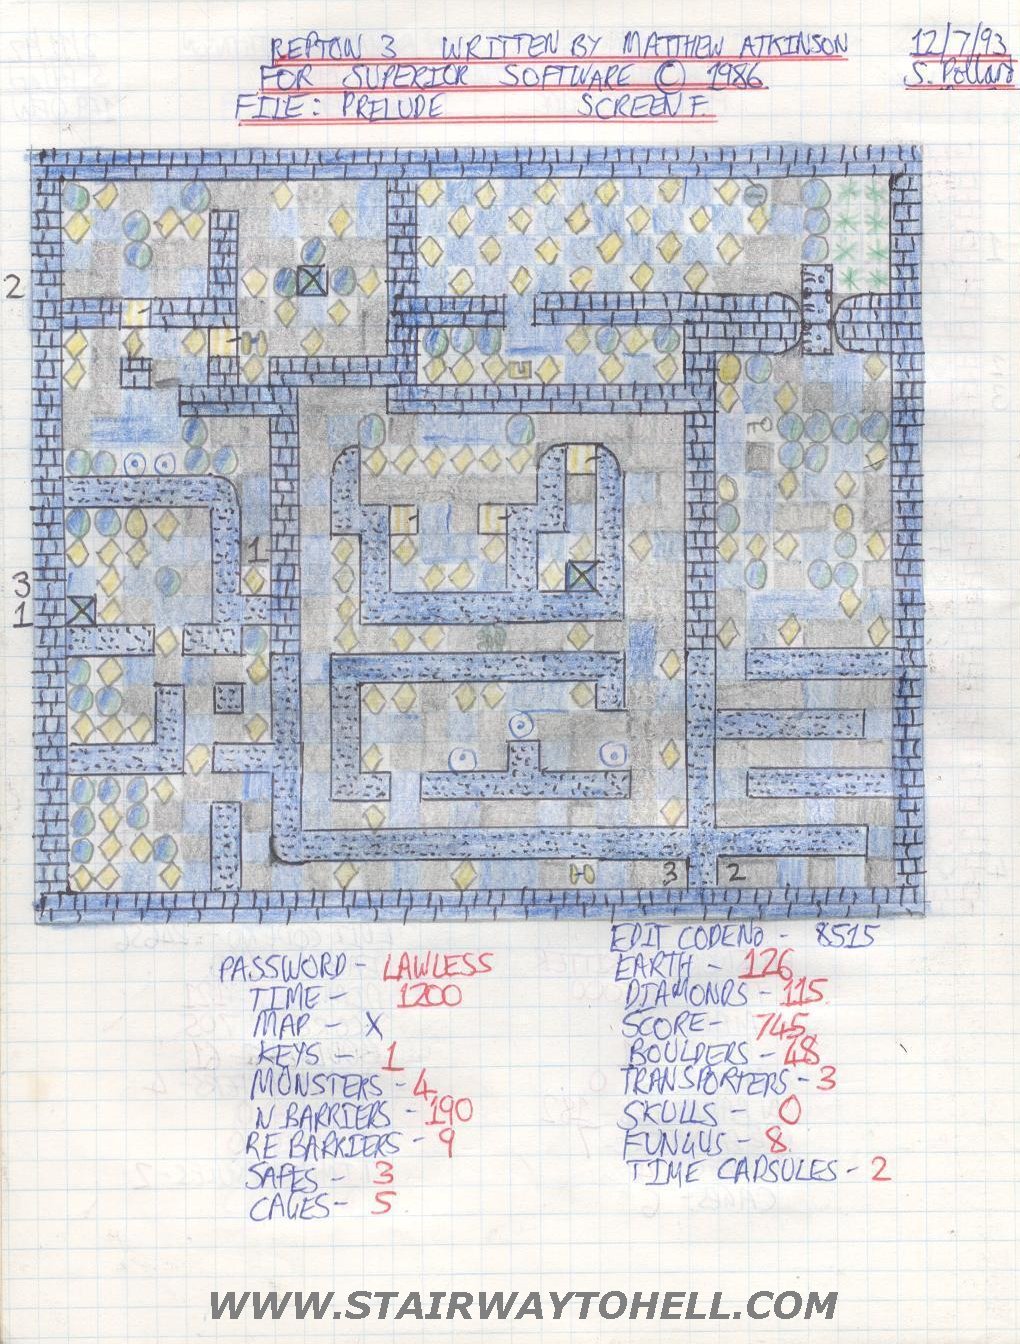 REPTON 3 WRITTEN BY MATTHEW ATKINSON
12/7/93
FOR SUPERIOR SOFTWARE © 1986
S. Pollard
FILE: PRELUDE SCREEN F.
2
1
3
1
3 2
EDIT CODE NO - 8515
PASSWORD - LAWLESS
EARTH - 126
TIME - 1200
DIAMONDS - 115
MAP - X
SCORE - 745
KEYS - 1
BOULDERS - 48
MONSTERS - 4
TRANSPORTERS - 3
N BARRIERS - 190
SKULLS - 0
RE BARRIERS - 9
FUNGUS - 8
SAFES - 3
TIME CAPSULES - 2
CAGES - 5
WWW.STAIRWAYTOHELL.COM